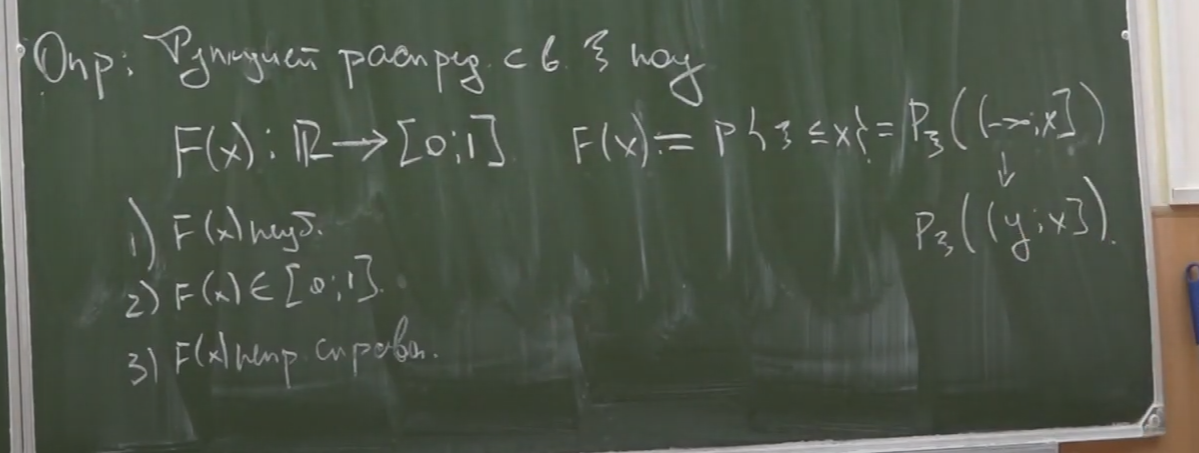 Опр: Функцией распред. с в. ξ наз
F(x): ℝ → [0;1] F(x) := P{ξ ≤ x} = P_ξ((-∞;x])
↓
P_ξ((y;x]).
1) F(x) неуб.
2) F(x) ∈ [0;1].
3) F(x) непр. справа.